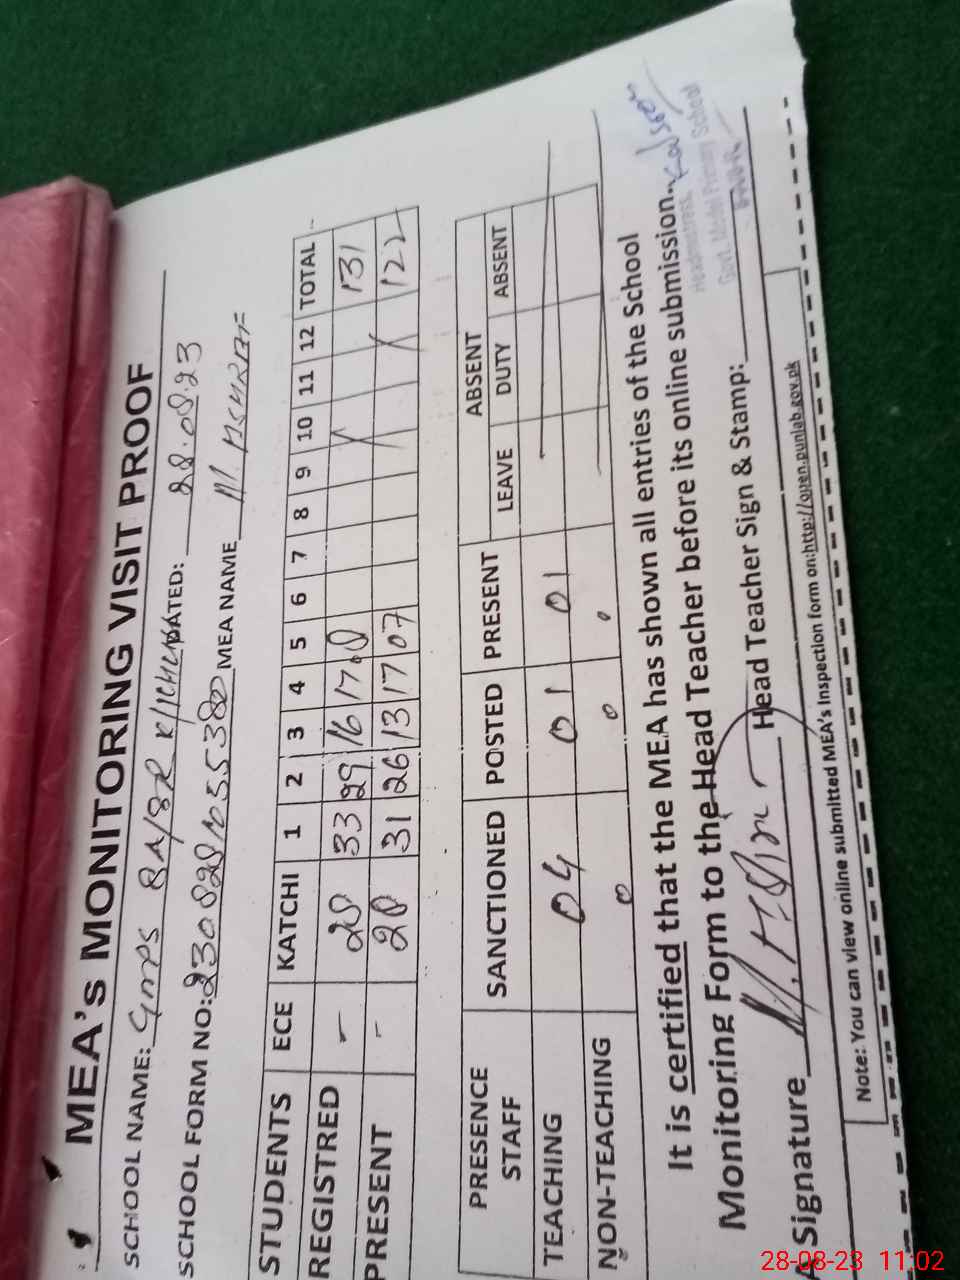 MEA's MONITORING VISIT PROOF
SCHOOL NAME: GMPS 8A/8R DATED: 28.08.23
SCHOOL FORM NO: MEA NAME M. ASHRAF
STUDENTS ECE KATCHI 1 2 3 4 5 6 7 8 9 10 11 12 TOTAL
REGISTRED - 28 33 29 16 17 8 131
PRESENT - 28 31 26 13 17 07 122
PRESENCE STAFF SANCTIONED POSTED PRESENT ABSENT
LEAVE DUTY ABSENT
TEACHING 04 01 01
NON-TEACHING 0 0 0
It is certified that the MEA has shown all entries of the School
Monitoring Form to the Head Teacher before its online submission.
Headmistress,
Govt. Model Primary School
Signature Head Teacher Sign & Stamp:
Note: You can view online submitted MEA's Inspection form on:http://open.punjab.gov.pk
28-08-23 11:02